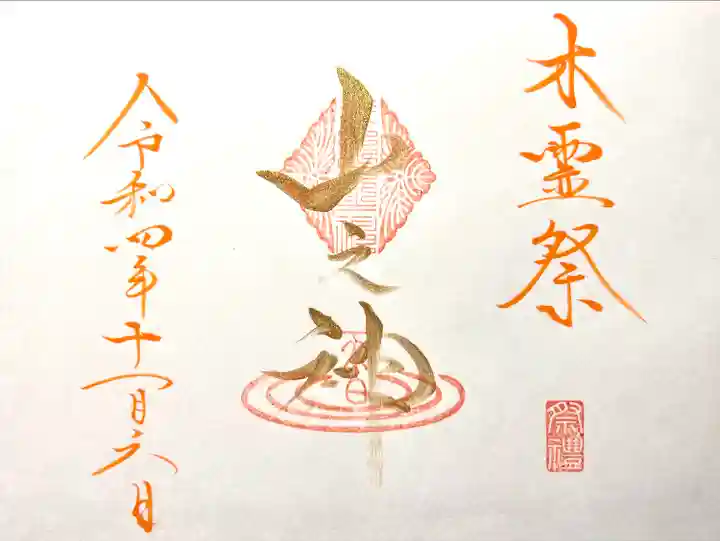 木霊祭
祭禮
山之神
令和四年十一月六日